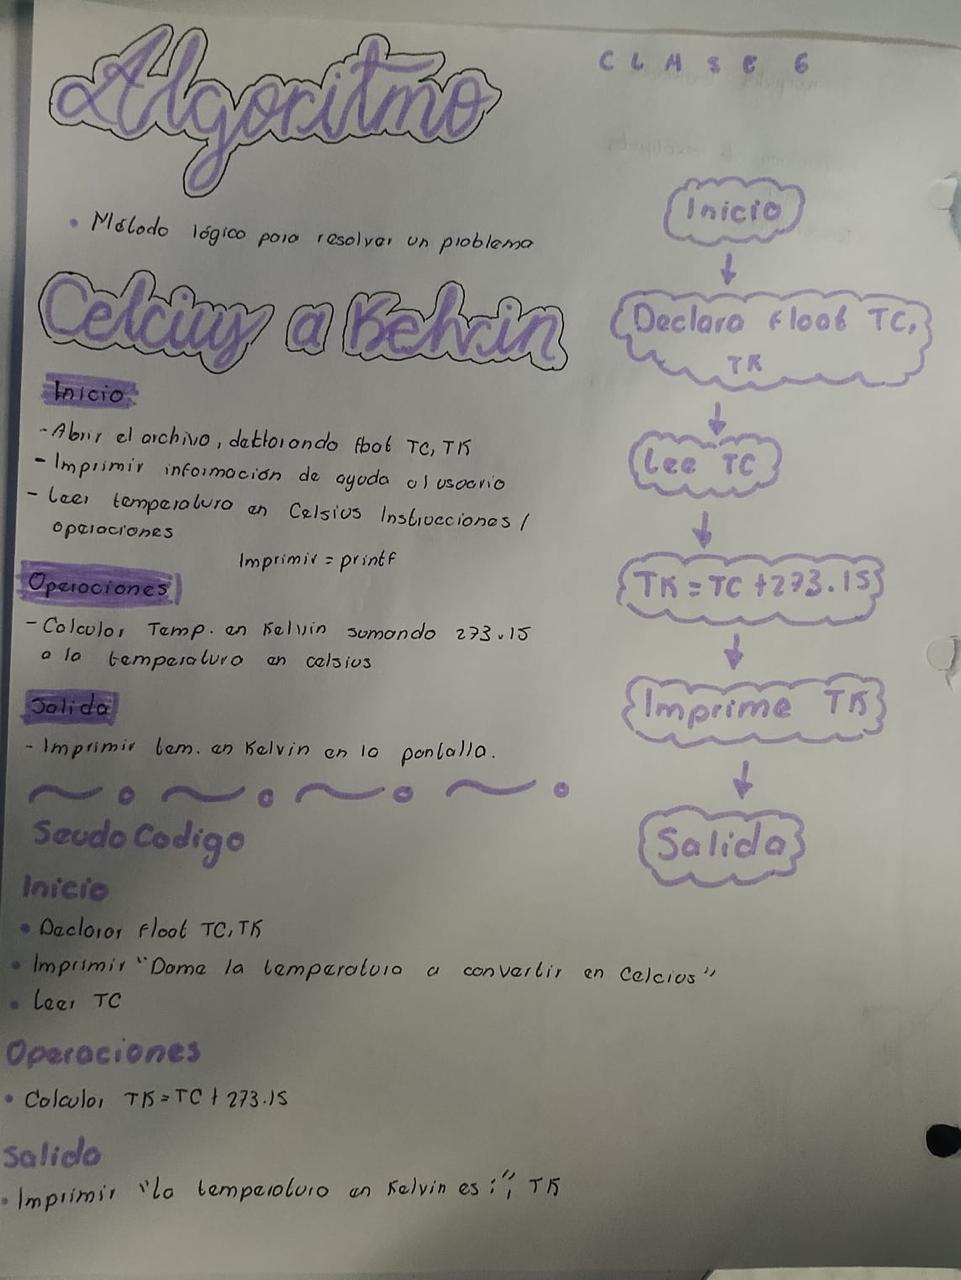 Algoritmo
CLASE 6
• Método lógico para resolver un problema
Celciuy a Kelvin
Inicio
- Abrir el archivo, declarando float TC, TK
- Imprimir información de ayuda al usuario
- Leer temperatura en Celsius Instrucciones /
operaciones
Imprimir = printf
Operaciones
- Calcular Temp. en Kelvin sumando 273.15
a la temperatura en celsius
Salida
- Imprimir tem. en Kelvin en la pantalla.
Seudo Codigo
Inicio
• Declarar float TC, TK
• Imprimir "Dame la temperatura a convertir en Celcius"
• Leer TC
Operaciones
• Calcular TK = TC + 273.15
Salida
• Imprimir "la temperatura en Kelvin es:", TK
Inicio
Declara float TC,
TK
Lee TC
TK = TC + 273.15
Imprime TK
Salida